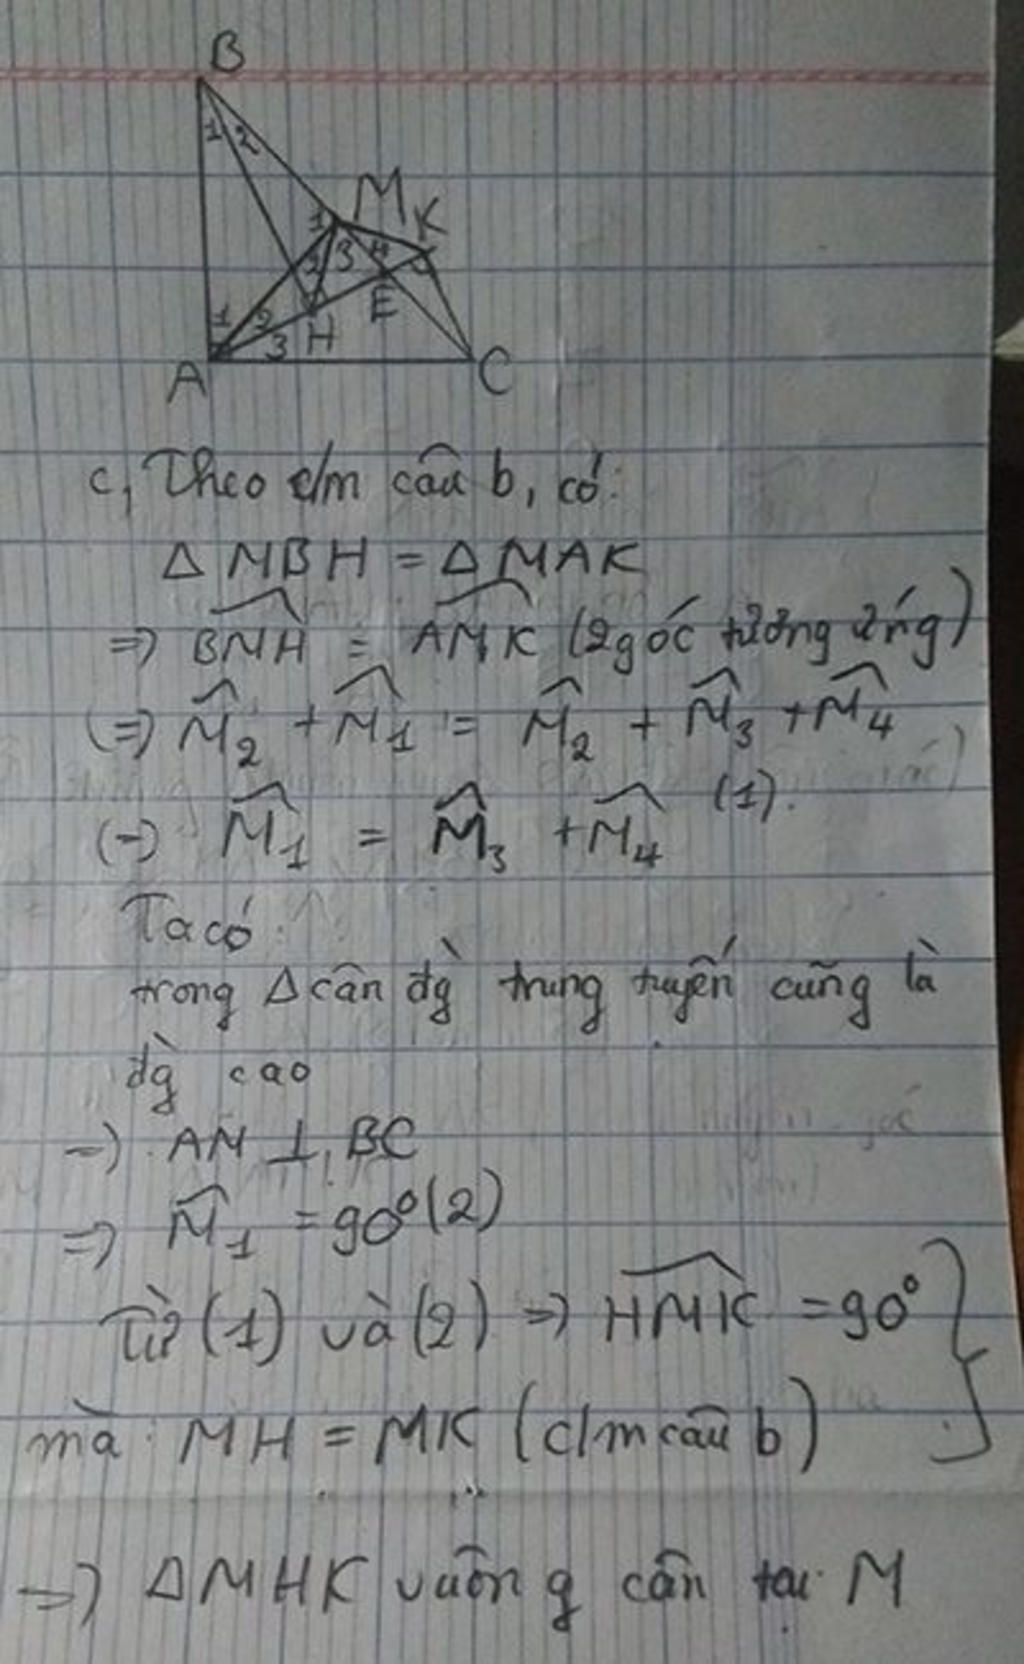 B
1 2
M K
1
2 3 4
1 2 H E
3
A C
c, Theo c/m câu b, có:
Δ MBH = Δ MAK
=> \widehat{BMH} = \widehat{AMK} (2 góc tương ứng)
(=) \widehat{M}_2 + \widehat{M}_1 = \widehat{M}_2 + \widehat{M}_3 + \widehat{M}_4
(=) \widehat{M}_1 = \widehat{M}_3 + \widehat{M}_4 (1).
Ta có:
trong Δ cân đg̀ trung tuyến cũng là
đg̀ cao
=) AM ⊥ BC
=> \widehat{M}_1 = 90° (2)
Từ (1) và (2) => \widehat{HMK} = 90°
mà: MH = MK (c/m câu b)
=> Δ MHK vuông cân tại M